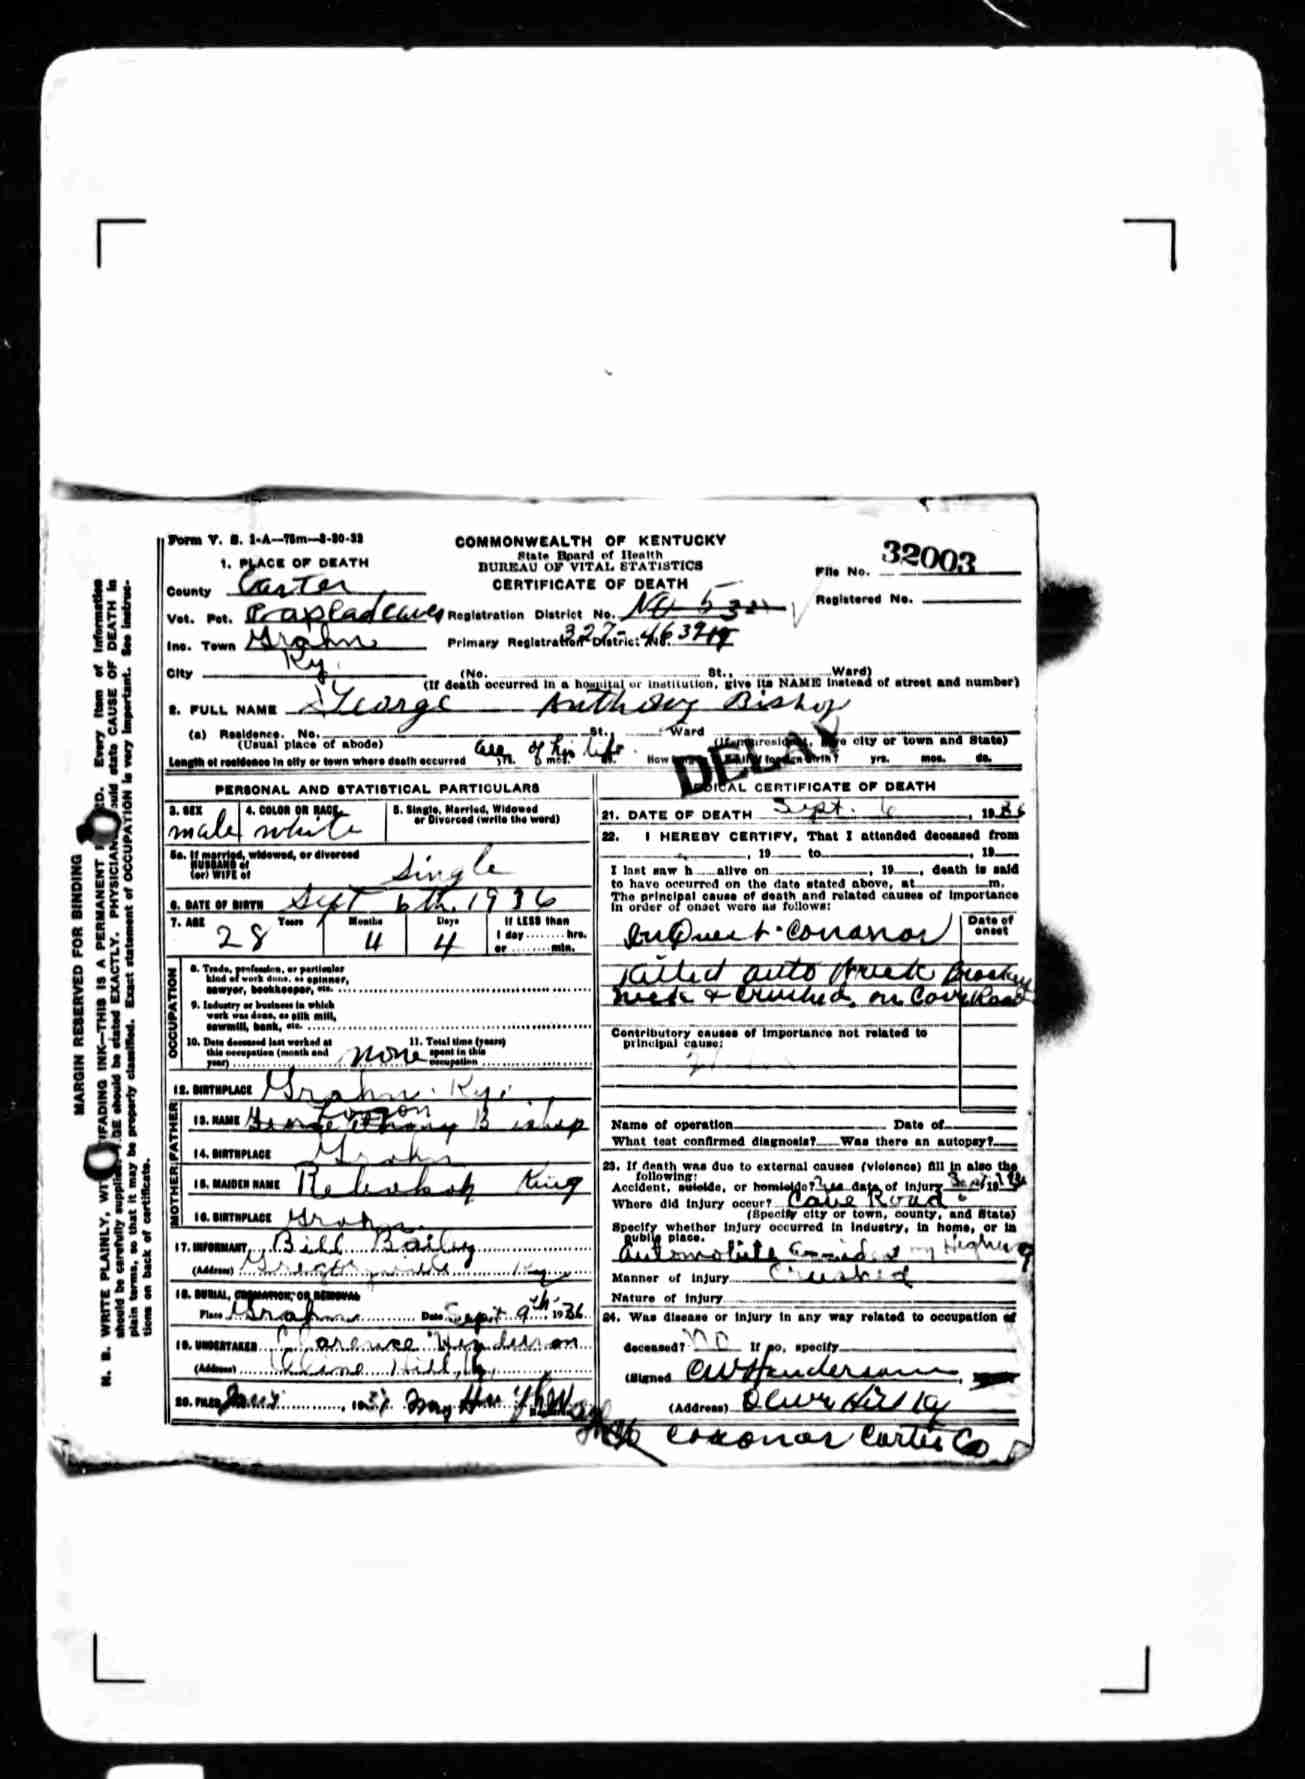 Form V. S. 1-A—75m—8-20-32
COMMONWEALTH OF KENTUCKY
State Board of Health
BUREAU OF VITAL STATISTICS
CERTIFICATE OF DEATH
File No. 32003
Registered No.
1. PLACE OF DEATH
County Carter
Vot. Pct.
Registration District No.
Inc. Town Grahn
Primary Registration District No.
City Ky.
(No. St., Ward)
(If death occurred in a hospital or institution, give its NAME instead of street and number)
2. FULL NAME George Anthony Bishop
(a) Residence. No. St., Ward
(Usual place of abode) (If nonresident, give city or town and State)
Length of residence in city or town where death occurred all of his life yrs. mos. ds. How yrs. mos. ds.
DELAY
PERSONAL AND STATISTICAL PARTICULARS
3. SEX male
4. COLOR OR RACE white
5. Single, Married, Widowed
or Divorced (write the word)
5a. If married, widowed, or divorced
HUSBAND of
(or) WIFE of
Single
6. DATE OF BIRTH Sept 6th. 1936
7. AGE Years Months Days If LESS than
28 4 4 1 day hrs.
or min.
OCCUPATION
8. Trade, profession, or particular
kind of work done, as spinner,
sawyer, bookkeeper, etc.
9. Industry or business in which
work was done, as silk mill,
sawmill, bank, etc.
10. Date deceased last worked at
this occupation (month and
year) none
11. Total time (years)
spent in this
occupation
12. BIRTHPLACE Grahn. Ky.
FATHER
13. NAME George Bishop
14. BIRTHPLACE Grahn
MOTHER
15. MAIDEN NAME King
16. BIRTHPLACE Grahn
17. INFORMANT Bill Bailey
(Address) Gregoryville Ky
18. BURIAL, CREMATION, OR REMOVAL
Place Grahn Date Sept 9th, 1936
19. UNDERTAKER Clarence Henderson
(Address) Olive Hill, Ky
20. FILED , 1937
MEDICAL CERTIFICATE OF DEATH
21. DATE OF DEATH Sept. 6, 1936
22. I HEREBY CERTIFY, That I attended deceased from
, 19 to , 19
I last saw h alive on , 19 , death is said
to have occurred on the date stated above, at m.
The principal cause of death and related causes of importance
in order of onset were as follows:
Date of
onset
InQuest. Cononor
Killed auto truck Broakey
neck & crushed, on Cave Road
Contributory causes of importance not related to
principal cause:
Name of operation Date of
What test confirmed diagnosis? Was there an autopsy?
23. If death was due to external causes (violence) fill in also the
following:
Accident, suicide, or homicide? yes date of injury Sept 19
Where did injury occur? Cave Road
(Specify city or town, county, and State)
Specify whether injury occurred in industry, in home, or in
public place.
automobile
Manner of injury Crushed
Nature of injury
24. Was disease or injury in any way related to occupation of
deceased? NO If so, specify
(Signed CW Henderson
(Address) Olive Hill Ky
Coxonor Carter Co
MARGIN RESERVED FOR BINDING
N. B. WRITE PLAINLY, WITH UNFADING INK—THIS IS A PERMANENT RECORD. Every item of information
should be carefully supplied. AGE should be stated EXACTLY. PHYSICIANS should state CAUSE OF DEATH in
plain terms, so that it may be properly classified. Exact statement of OCCUPATION is very important. See instruc-
tions on back of certificate.